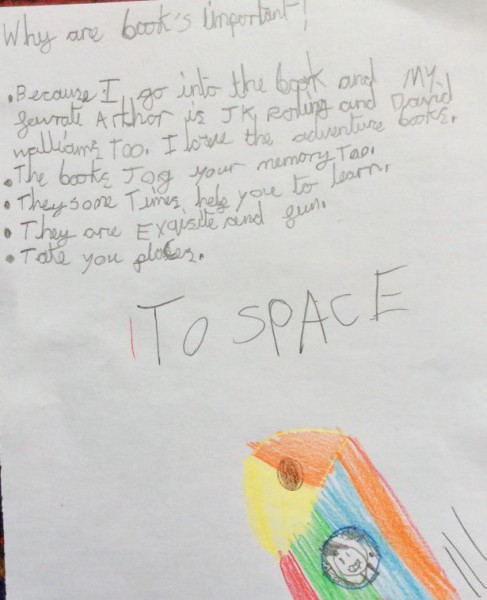 Why are book's important!
• Because I go into the book and MY
favrote Arthor is JK Roling and David
walliams Too. I love the adventure books.
• The books Jog your memory Too.
• They some Times help you to learn.
• They are Exqisite and fun.
• Take you places.
TO SPACE